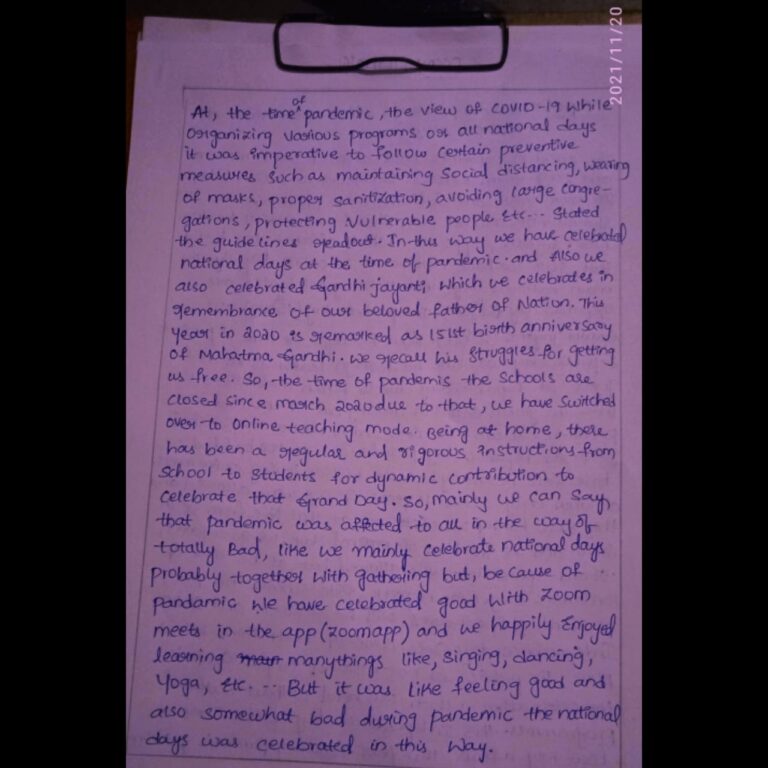 2021/11/20
At, the time of pandemic, the view of COVID-19 While
Organizing Various programs or all national days
it was imperative to follow certain preventive
measures such as maintaining social distancing, wearing
of masks, proper sanitization, avoiding large congre-
gations, protecting vulnerable people Etc... Stated
the guidelines readout. In this way we have celebrated
national days at the time of pandemic. and Also we
also celebrated Gandhi jayanti, which we celebrates in
remembrance of our beloved father of Nation. This
year in 2020 is remarked as 151st birth anniversary
of Mahatma Gandhi. we recall his struggles for getting
us free. So, the time of pandemis the Schools are
closed since march 2020 due to that, we have switched
over to online teaching mode. Being at home, there
has been a regular and rigorous instructions from
school to students for dynamic contribution to
celebrate that Grand Day. So, mainly we can say,
that pandemic was affected to all in the way of
totally Bad, like we mainly celebrate national days
probably together with gathering but, because of
pandamic We have celebrated good With zoom
meets in the app (zoom app) and we happily Enjoyed
learning many things like, singing, dancing,
Yoga, Etc... But it was like feeling good and
also somewhat bad during pandemic the national
days was celebrated in this Way.